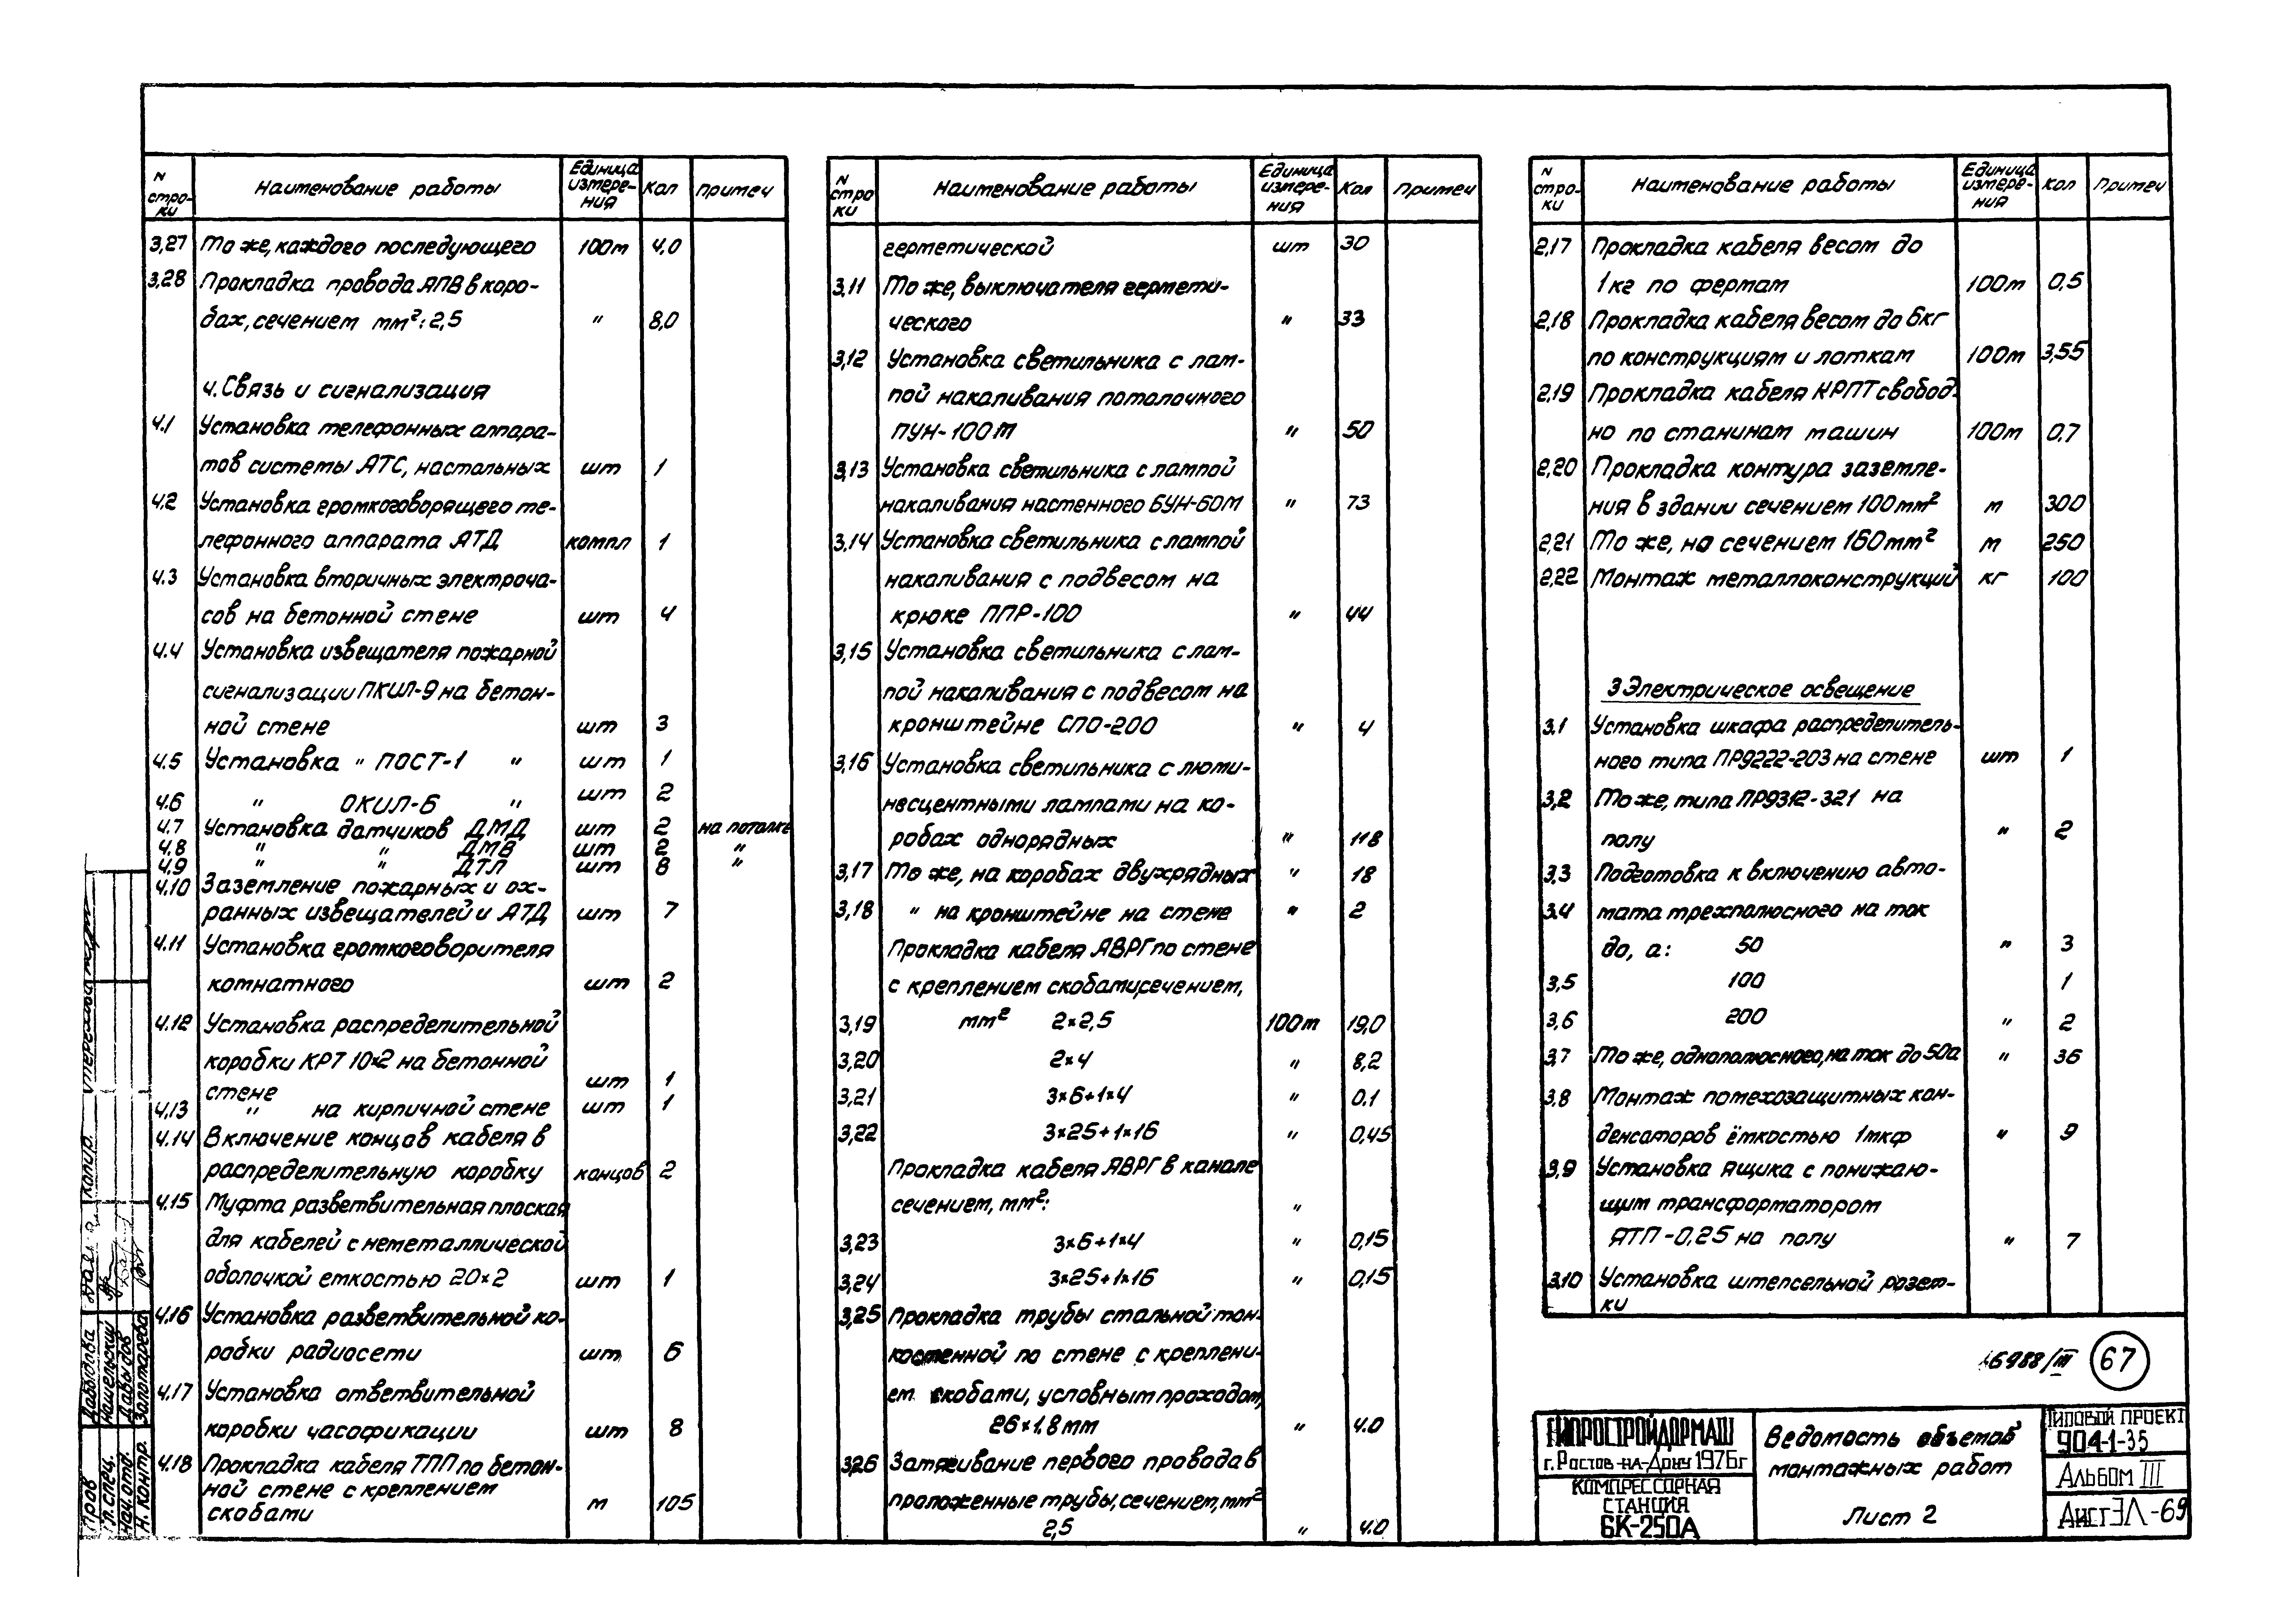 N строки Наименование работы Единица измерения Кол Примеч
3,27 То же, каждого последующего 100м 4,0
3,28 Прокладка провода АПВ в коро-
бах, сечением мм²: 2,5 " 8,0
4. Связь и сигнализация
4.1 Установка телефонных аппара-
тов системы АТС, настольных шт 1
4.2 Установка громкоговорящего те-
лефонного аппарата АТД компл 1
4.3 Установка вторичных электроча-
сов на бетонной стене шт 4
4.4 Установка извещателя пожарной
сигнализации ПКИЛ-9 на бетон-
ной стене шт 3
4.5 Установка " ПОСТ-1 " шт 1
4.6 " ОКИЛ-6 " шт 2
4.7 Установка датчиков ДМД шт 2 на потолке
4.8 " " ДМВ шт 2 "
4.9 " " ДТЛ шт 8 "
4.10 Заземление пожарных и ох-
ранных извещателей и АТД шт 7
4.11 Установка громкоговорителя
комнатного шт 2
4.12 Установка распределительной
коробки КРТ 10×2 на бетонной
стене шт 1
4.13 " на кирпичной стене шт 1
4.14 Включение концов кабеля в
распределительную коробку концов 2
4.15 Муфта разветвительная плоская
для кабелей с неметаллической
оболочкой емкостью 20×2 шт 1
4.16 Установка разветвительной ко-
робки радиосети шт 6
4.17 Установка ответвительной
коробки часофикации шт 8
4.18 Прокладка кабеля ТПП по бетон-
ной стене с креплением
скобами м 105
N строки Наименование работы Единица измерения Кол Примеч
герметической шт 30
3,11 То же, выключателя гермети-
ческого " 33
3,12 Установка светильника с лам-
пой накаливания потолочного
ПУН-100М " 50
3,13 Установка светильника с лампой
накаливания настенного БУН-60М " 73
3,14 Установка светильника с лампой
накаливания с подвесом на
крюке ППР-100 " 44
3,15 Установка светильника с лам-
пой накаливания с подвесом на
кронштейне СПО-200 " 4
3,16 Установка светильника с люми-
несцентными лампами на ко-
робах однорядных " 118
3,17 То же, на коробах двухрядных " 18
3,18 " на кронштейне на стене " 2
Прокладка кабеля АВРГ по стене
с креплением скобами, сечением,
3,19 мм² 2×2,5 100м 19,0
3,20 2×4 " 8,2
3,21 3×6+1×4 " 0.1
3,22 3×25+1×16 " 0,45
Прокладка кабеля АВРГ в канале
сечением, мм²: "
3,23 3×6+1×4 " 0,15
3,24 3×25+1×16 " 0,15
3,25 Прокладка трубы стальной тон-
костенной по стене с креплени-
ем скобами, условным проходом,
26×1,8мм " 4.0
3.26 Затягивание первого провода в
проложенные трубы, сечением, мм²
2,5 " 4.0
N строки Наименование работы Единица измерения Кол Примеч
2,17 Прокладка кабеля весом до
1кг по фермам 100м 0,5
2,18 Прокладка кабеля весом до 6кг
по конструкциям и лоткам 100м 3,55
2,19 Прокладка кабеля КРПТ свобод-
но по станинам машин 100м 0,7
2,20 Прокладка контура заземле-
ния в здании сечением 100мм² м 300
2,21 То же, но сечением 160мм² м 250
2,22 Монтаж металлоконструкций кг 100
3 Электрическое освещение
3.1 Установка шкафа распределитель-
ного типа ПР9222-203 на стене шт 1
3,2 То же, типа ПР9312-321 на
полу " 2
3.3 Подготовка к включению авто-
3.4 мата трехполюсного на ток
до, а: 50 " 3
3,5 100 1
3,6 200 " 2
3,7 То же, однополюсного, на ток до 50а " 36
3,8 Монтаж помехозащитных кон-
денсаторов ёмкостью 1мкф " 9
3,9 Установка ящика с понижаю-
щим трансформатором
ЯТП-0,25 на полу " 7
3.10 Установка штепсельной розет-
ки
6988/III 67
ГИПРОСТРОЙДОРМАШ
г. Ростов-на-Дону 1976г
КОМПРЕССОРНАЯ
СТАНЦИЯ
6К-250А
Ведомость объемов
монтажных работ
Лист 2
ТИПОВОЙ ПРОЕКТ
904-1-35
Альбом III
Лист ЭЛ-69
Пров Давыдова
Гл. спец.
Нач. отд. Давыдов
Н. контр. Золотарева
Копир.